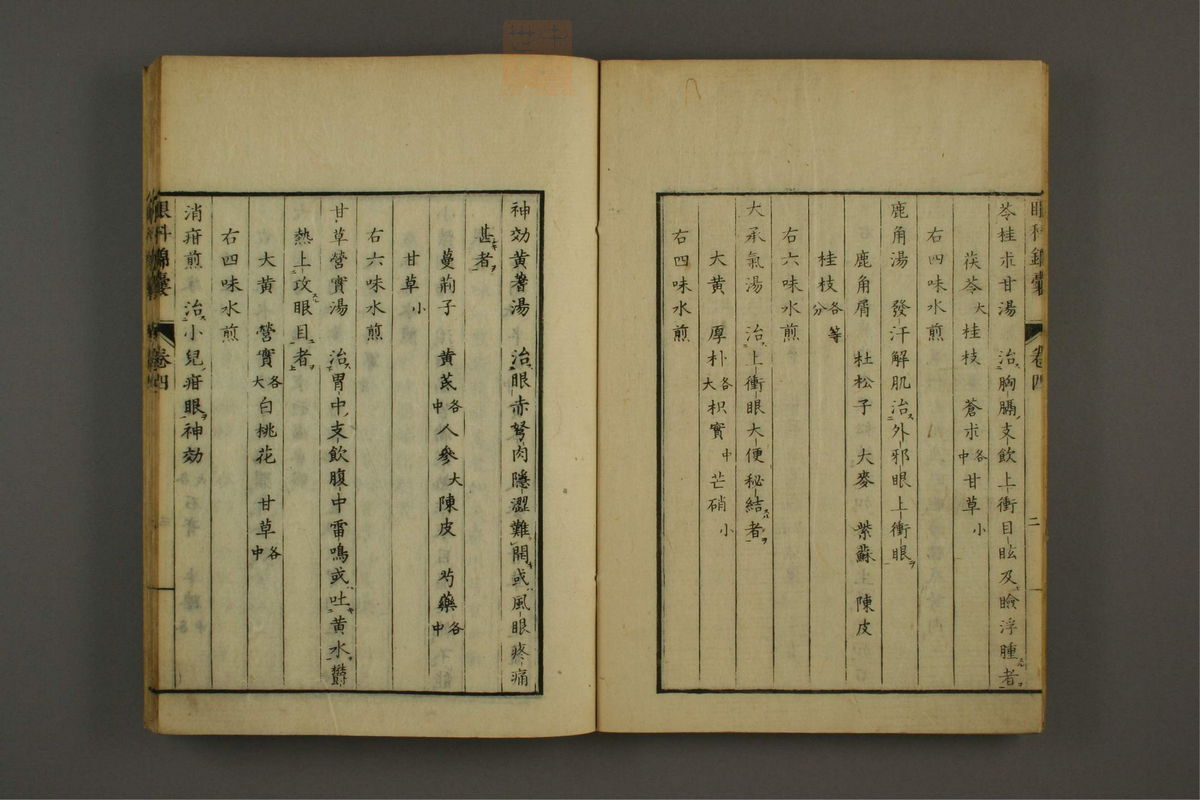 眼科錦囊 卷四 二
苓桂朮甘湯 治胸膈支飲上衝目眩及瞼浮腫者
茯苓大 桂枝 蒼朮各中 甘草小
右四味水煎
鹿角湯 發汗解肌治外邪眼上衝眼
鹿角屑 杜松子 大麥 紫蘇 陳皮
桂枝各等分
右六味水煎
大承氣湯 治上衝眼大便秘結者
大黃 厚朴各大 枳實中 芒硝小
右四味水煎
神効黃耆湯 治眼赤弩肉隱澀難開或風眼疼痛
甚者
蔓荊子 黃芪各中 人參大 陳皮 芍藥各中
甘草小
右六味水煎
甘草營實湯 治胃中支飲腹中雷鳴或吐黃水鬱
熱上攻眼目者
大黃 營實各大 白桃花 甘草各中
右四味水煎
消疳煎 治小兒疳眼神効
眼科錦囊 卷四